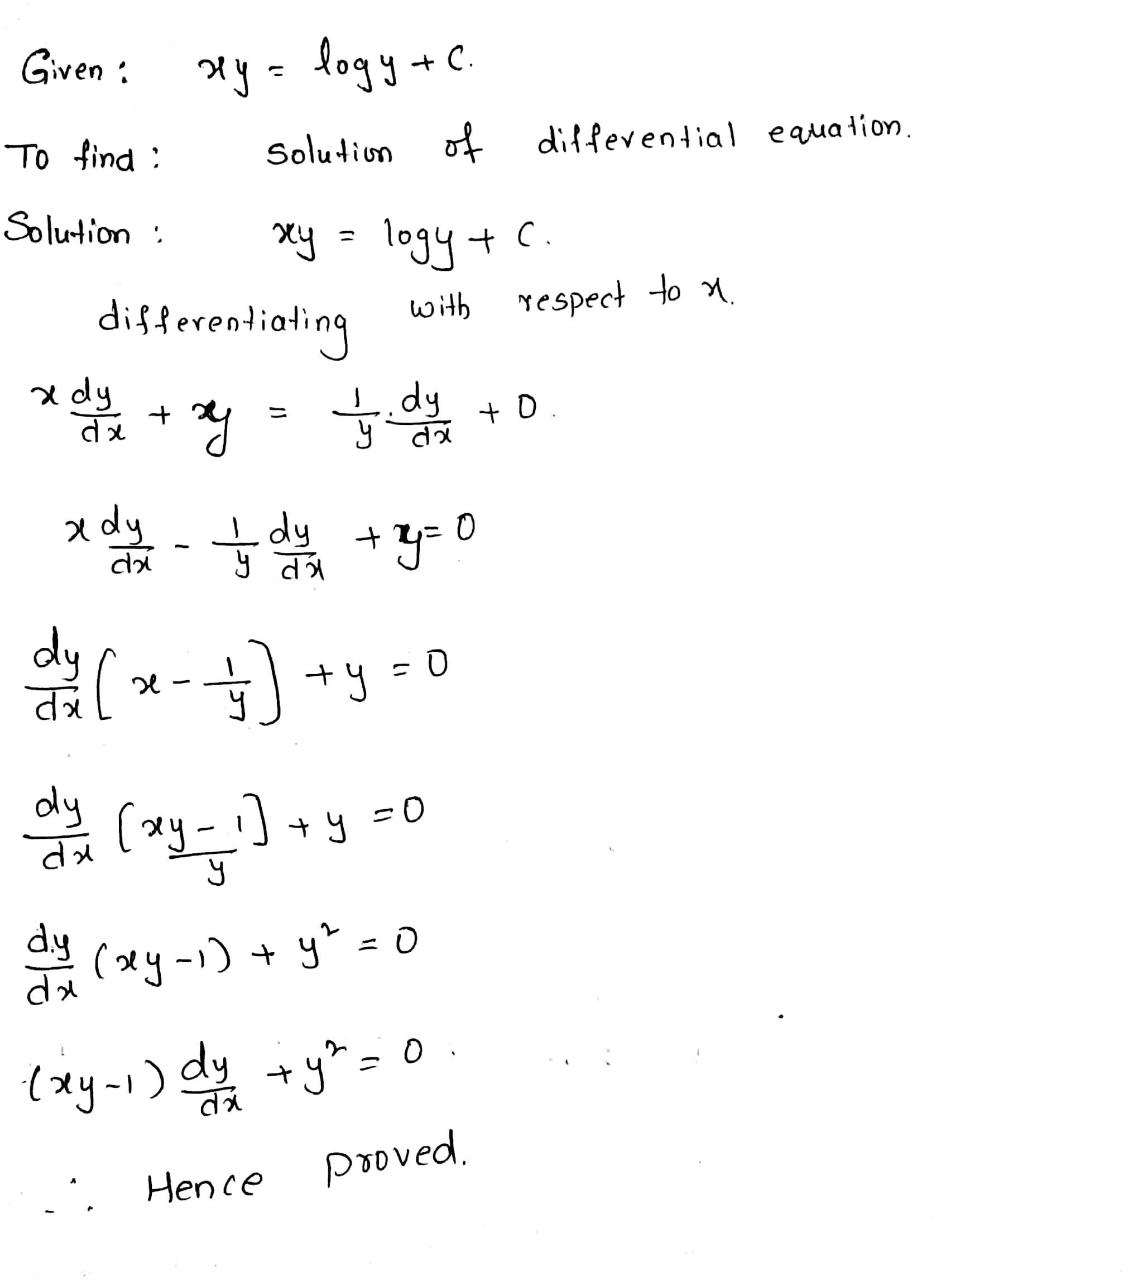 Given : xy = log y + C.
To find : Solution of differential equation.
Solution : xy = logy + C.
differentiating with respect to x.
x dy/dx + y = 1/y . dy/dx + 0.
x dy/dx - 1/y dy/dx + y = 0
dy/dx [x - 1/y] + y = 0
dy/dx [xy - 1/y] + y = 0
dy/dx (xy - 1) + y² = 0
(xy - 1) dy/dx + y² = 0.
∴ Hence proved.